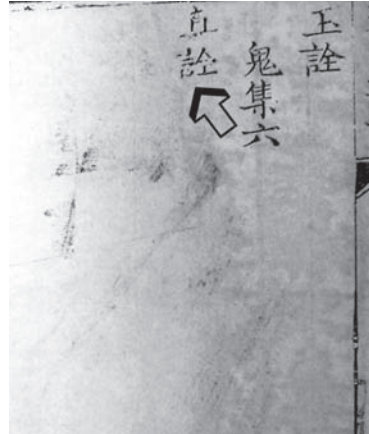 玉詮
鬼集六
詮